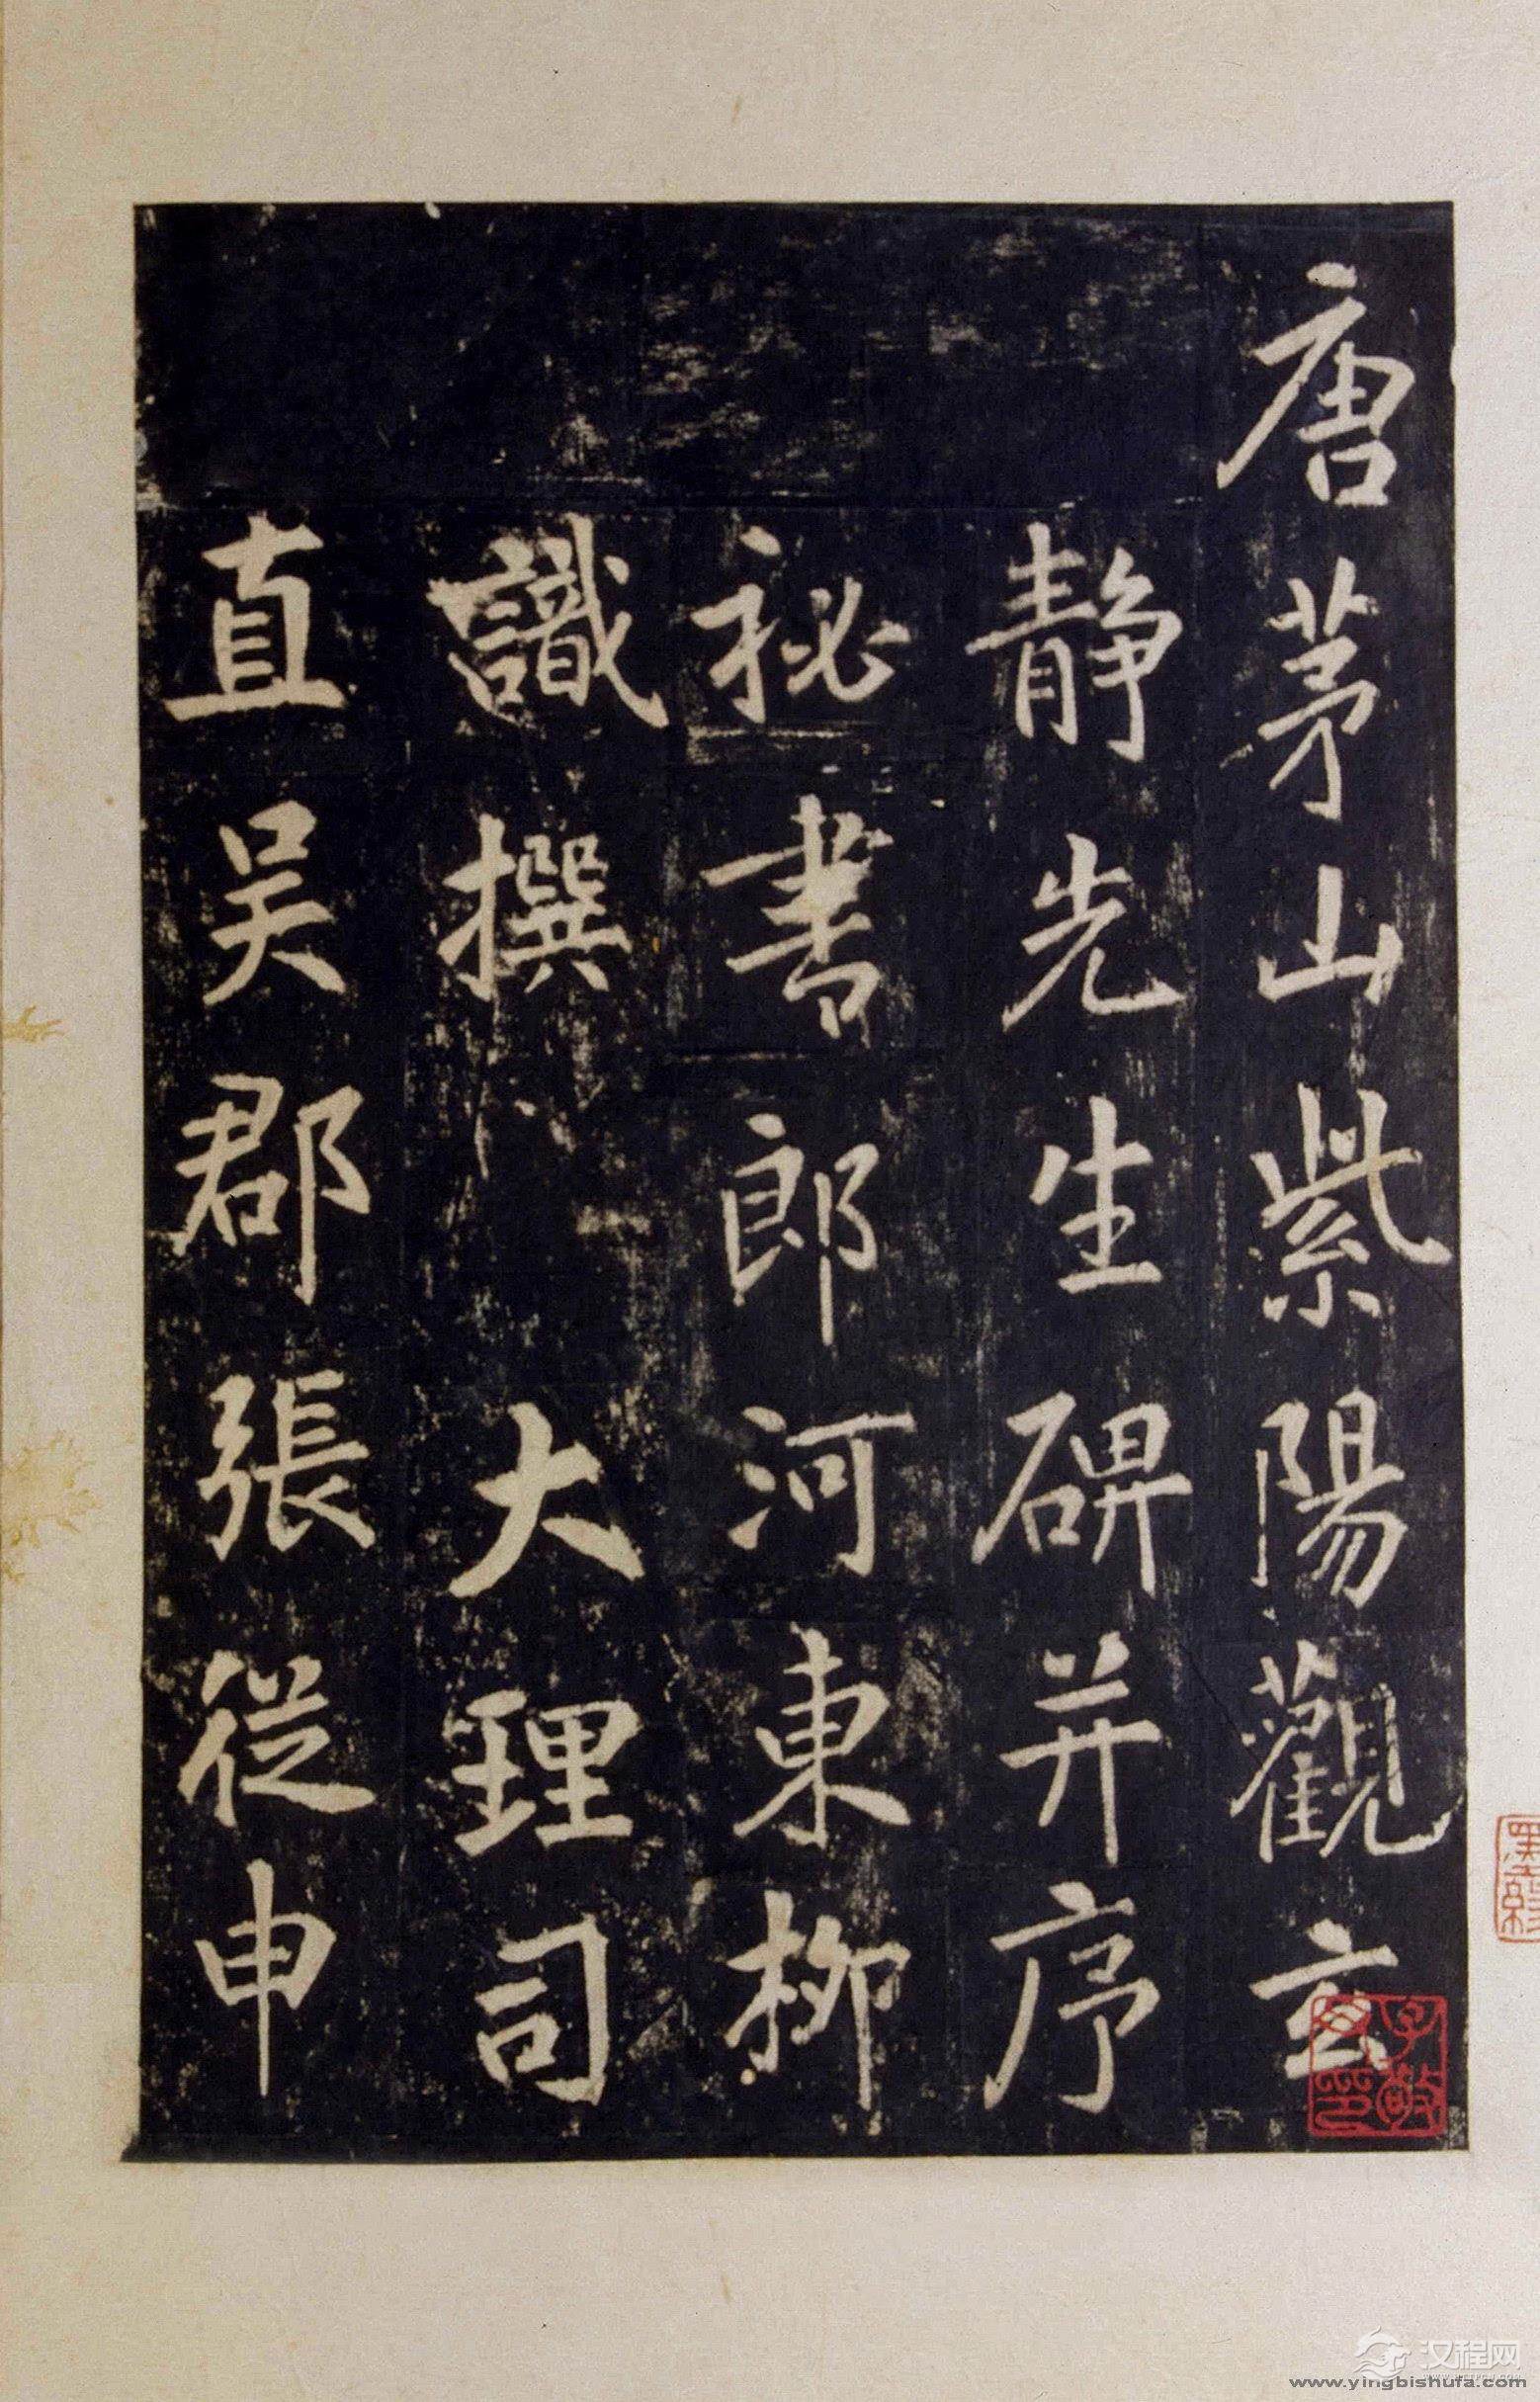 唐茅山紫陽觀玄
靜先生碑并序
祕書郎河東柳
識撰 大理司
直吳郡張從申
汉程网
www.yingbishufa.com